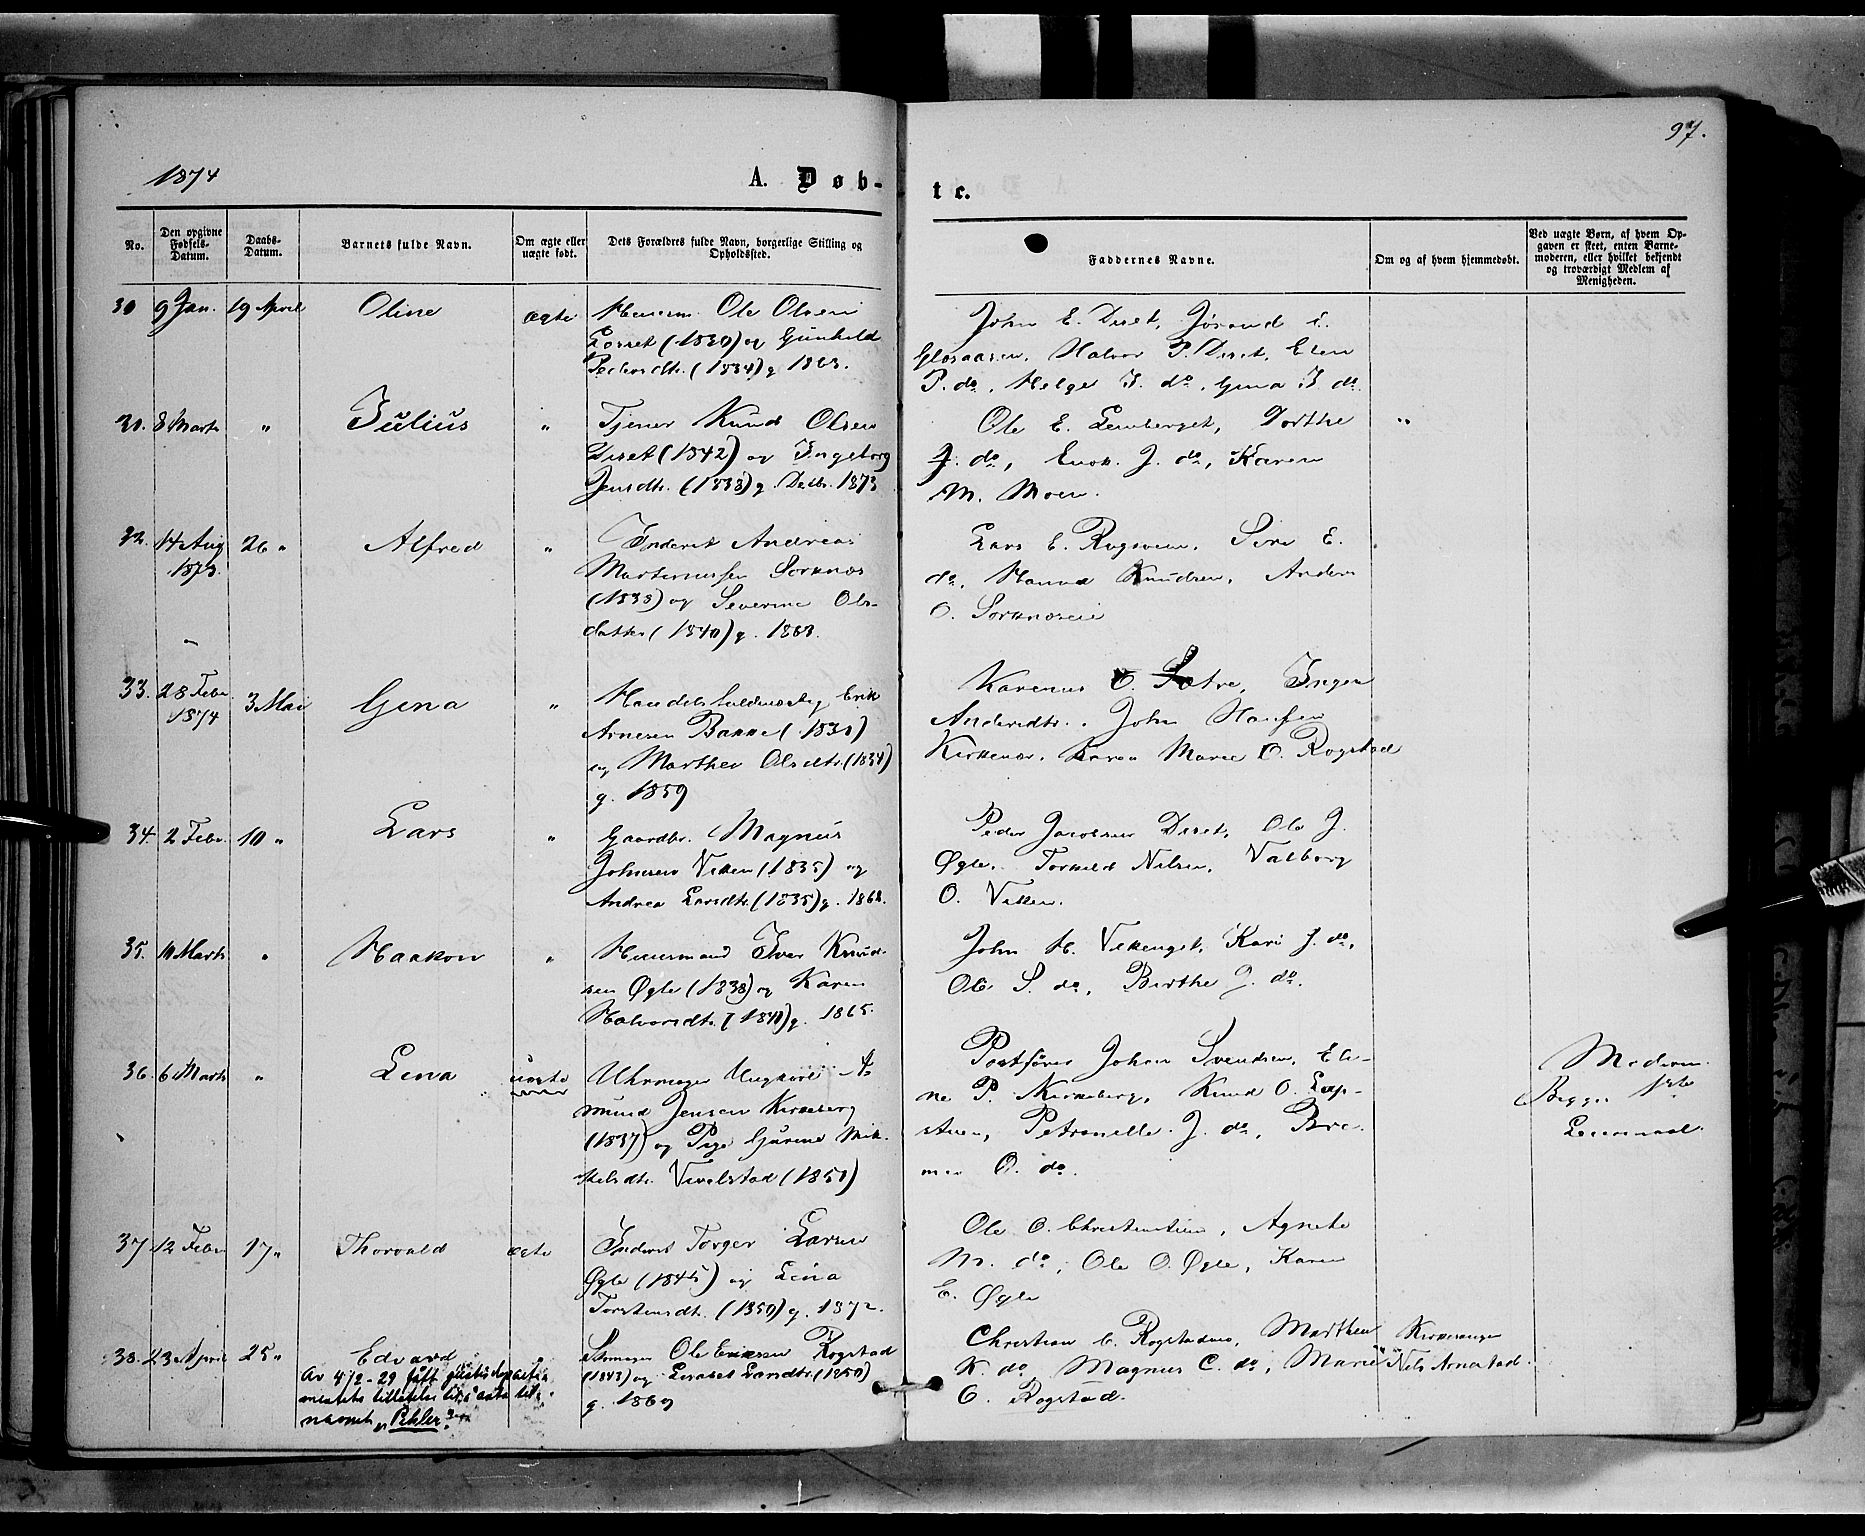 1874
A. Døb-
te.
97.
No.
Den opgivne Fødsels-Datum.
Daabs-Datum.
Barnets fulde Navn.
Om ægte eller uægte født.
Dets Forældres fulde Navn, borgerlige Stilling og Opholdssted.
Faddernes Navne.
Om og af hvem hjemmedøbt.
Ved uægte Børn, af hvem Opgaven er skeet, enten Barnemoderen, eller hvilket bekjendt og troværdigt Medlem af Menigheden.
30 9 Jan. 19 April Oline ægte Huusm. Ole Olsen
(1830) og Gunhild
Pedersdtr. (1834) g. 1863.
John E. Diset, Jørand
Halvor P. Diset, Elen
P. do, Helge J. do, Gina J. do.
31. 8 Marts " Julius " Tjener Knud Olsen
Diset (1842) og Ingeborg
Jensdtr. (1838) g. Decbr. 1873
Ole E. Lemberget, Dorthe "
J. do, Enok J. do, Karen
M. Moen.
32. 14 Aug 1873. 26 " Alfred " Inderst Andreas
Martinussen Sorknæs
(1838) og Severine Ols-
datter (1840) g. 1868.
Lars E. Rogsveen, Siri E.
do, Hanna Knudsen, Anders
O. Sorknæseie
33. 28 Febr. 1874 3 Mai Gina " Erik
Arnesen Bakke (1831)
og Marthea Olsdtr. (1834)
g. 1859
Karenus O. Sætre, Inger
Andersdtr., John Hansen
Kirkenær, Karen Marie O. Rogstad
34. 2 Febr. 10 " Lars " Gaardbr. Magnus
Johnsen Vikken (1835) og
Andrea Larsdtr. (1835) g. 1868.
Peder Jacobsen Diset, Ole J.
Øgle, Torkild Nilsen, Valborg
O. Vikken.
35. Marts " Haakon " Huusmand Iver Knud-
sen Øgle (1838) og Karen
Halvorsdtr. (1840) g. 1865.
John H. Vikenget, Kari J. do,
Ole S. do, Birthe J. do.
36. 6 Marts " Lina uægte Uhrmager Ungkarl A-
mund Jensen Kirkeberg
(1837) og Pige Gurine Mik-
kelsdtr. Vevelstad (1850)
Postfører Johan Svendsen, Eli-
ne P. Kirkeberg, Knud O. Løp-
stuen, Petronelle J. do, Bre-
O. do.
Moderen.
Begges 1ste
Leiermaal.
37 12 Febr. 17 " Thorvald ægte Inderst Torger Larsen
Øgle (1845) og Lina
Torstensdtr. (1850) g. 1872.
Ole O. Christiansen, Agnete
M. do, Ole O. Øgle, Karen
E. Øgle
38. 23 April 25 " Edvard Skomager Ole Eriksen Rogstad
(1843) og Lisabet Larsdtr. (1850)
g. 1869
Av 4/2-29 fått justisdeparte-
mentets tillatelse til å anta til-
navnet "Pehler".
Christian C. Rogstadmo, Marthea
K. do Magnus C. do, Marie
O. Rogstad.
Kirkesanger
Nils Arnestad.